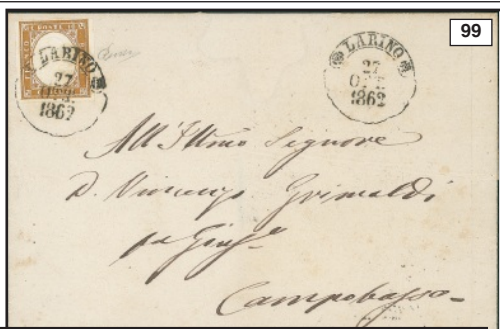 99
LARINO
27
OTT.
1862
LARINO
27
OTT.
1862
All'Illmo Signore
D. Vincenzo Grimaldi
Campobasso